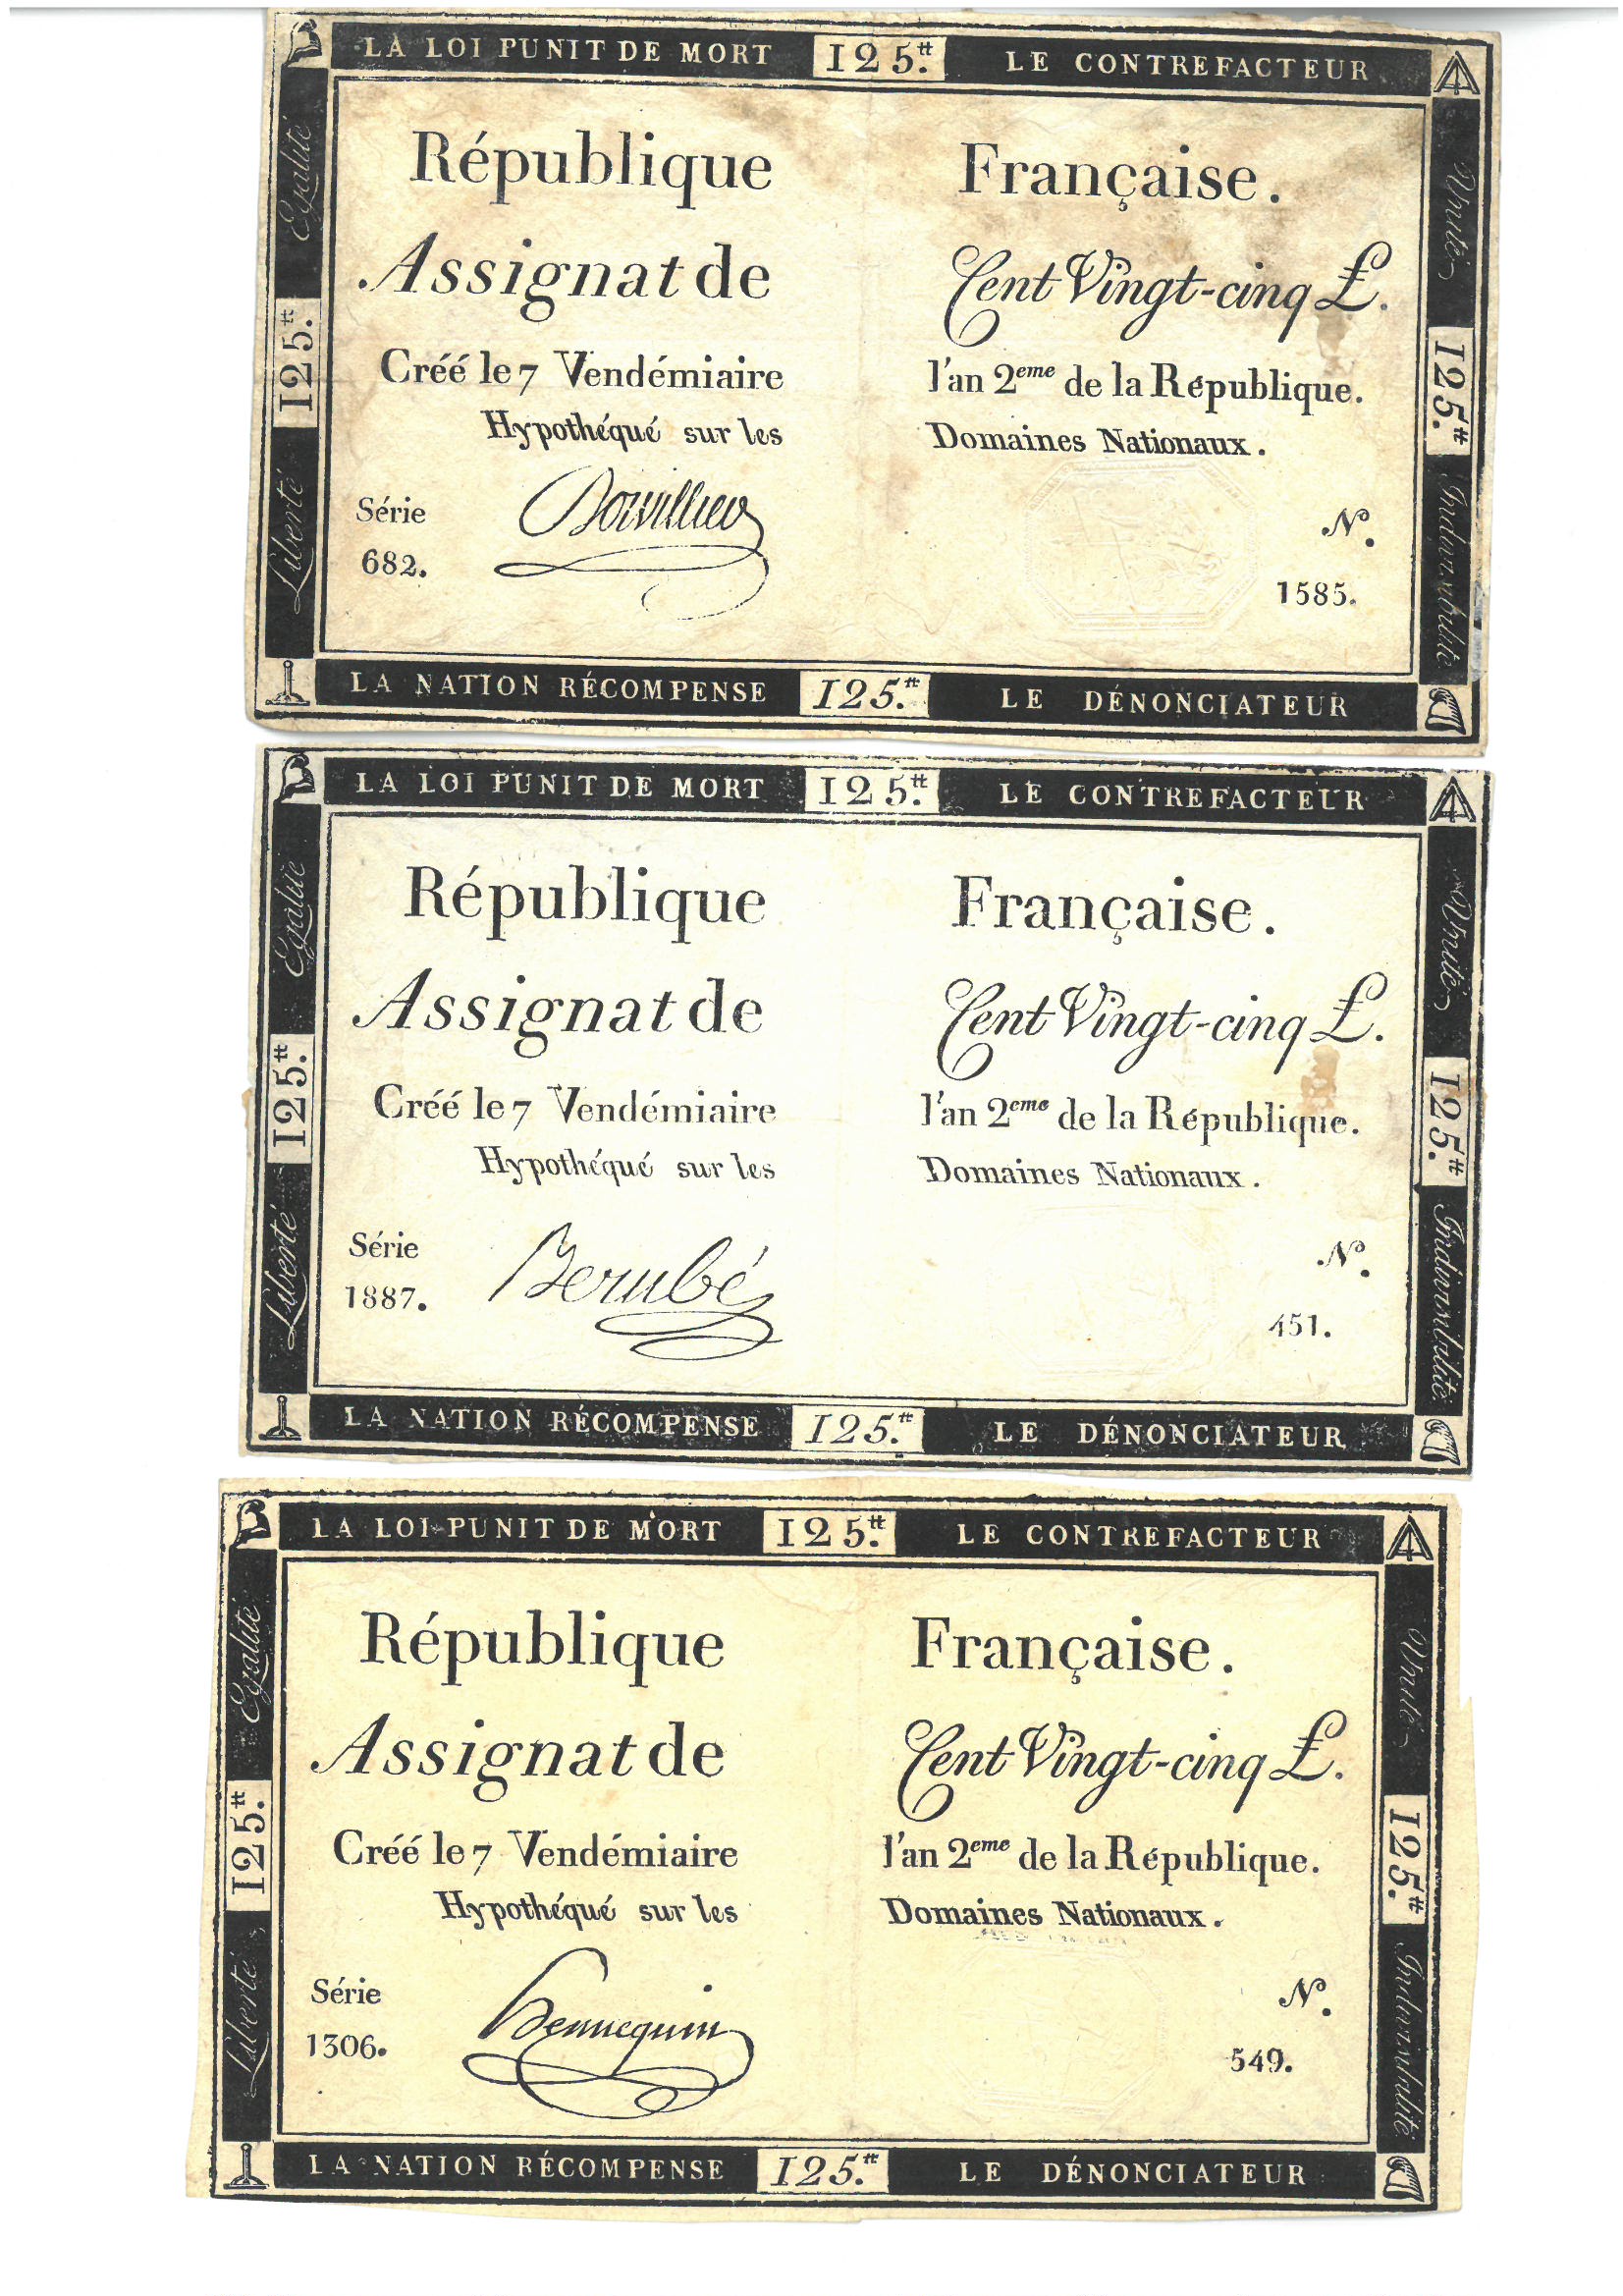 LA LOI PUNIT DE MORT 125.tt LE CONTREFACTEUR
Egalité
125.tt
Liberté
Unité
125.tt
Indivisibilité
République Française.
Assignat de Cent Vingt-cinq £.
Créé le 7 Vendémiaire l'an 2eme de la République.
Hypothéqué sur les Domaines Nationaux.
Série
682.
No.
1585.
LA NATION RÉCOMPENSE 125.tt LE DÉNONCIATEUR
LA LOI PUNIT DE MORT 125.tt LE CONTREFACTEUR
Egalité
125.tt
Liberté
Unité
125.tt
Indivisibilité
République Française.
Assignat de Cent Vingt-cinq £.
Créé le 7 Vendémiaire l'an 2eme de la République.
Hypothéqué sur les Domaines Nationaux.
Série
1887.
Berubé
No.
451.
LA NATION RÉCOMPENSE 125.tt LE DÉNONCIATEUR
LA LOI PUNIT DE MORT 125.tt LE CONTREFACTEUR
Egalité
125.tt
Liberté
Unité
125.tt
Indivisibilité
République Française.
Assignat de Cent Vingt-cinq £.
Créé le 7 Vendémiaire l'an 2eme de la République.
Hypothéqué sur les Domaines Nationaux.
Série
1306.
Hennequin
No.
549.
LA NATION RÉCOMPENSE 125.tt LE DÉNONCIATEUR